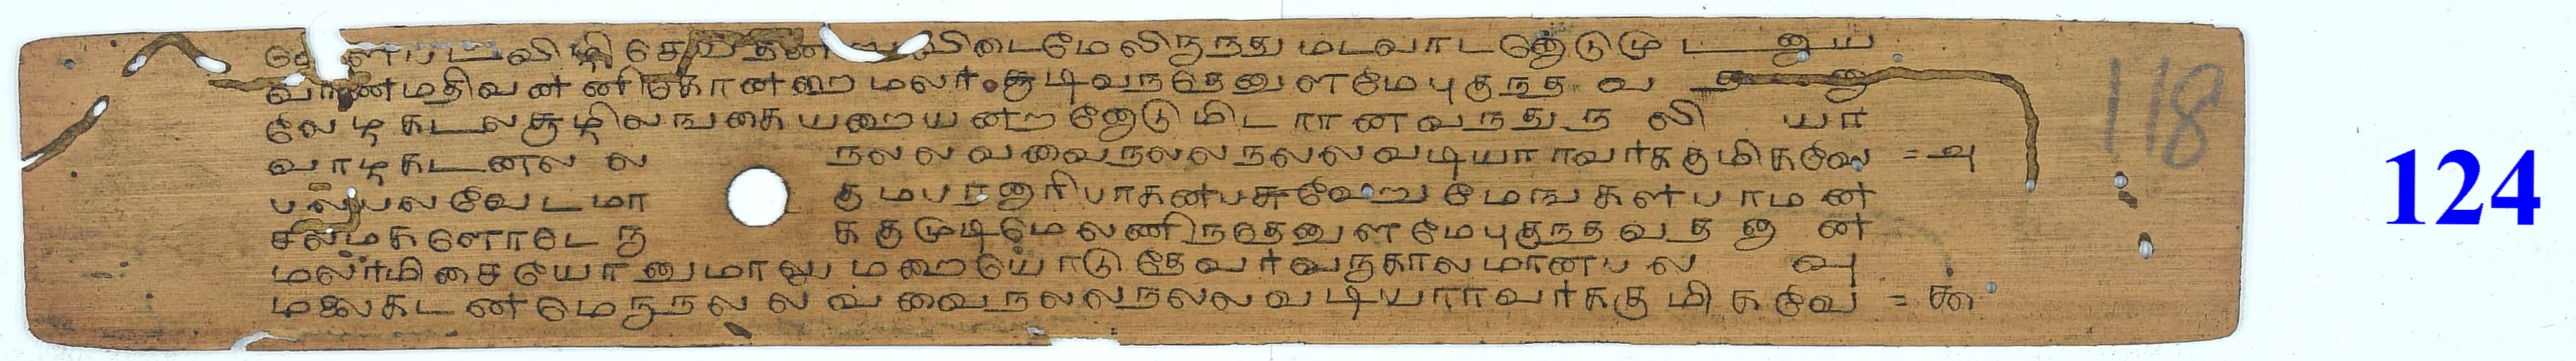 வேளபடவிழிசெயதன்றுவிடைமேலிருநதுமடவாடனொடுமுடனாய
வாண்மதிவன்னிகொன்றைமலர்சூடிவநதெனுளமேபுகுநதவதனா
வேழகடலசூழிலஙகையரையனறனொடுமிடரானவநதுநலியா
வாழகடனலலநலலவவைநலலநலலவடியாரவர்ககுமிகவே = ௮
பலபலவேடமாகுமபரனாரிபாகன்பசுவேறுமேஙகள்பரமன்
சலமகளோடெருககுமுடிமேலணிநதெனுளமேபுகுநதவதனான்
மலர்மிசையோனுமாலுமறையோடுதேவர்வருகாலமானபலவு
மலைகடன்மெருநலலவவைநலலநலலவடியாரவர்ககுமிகவே = ௯
118
124